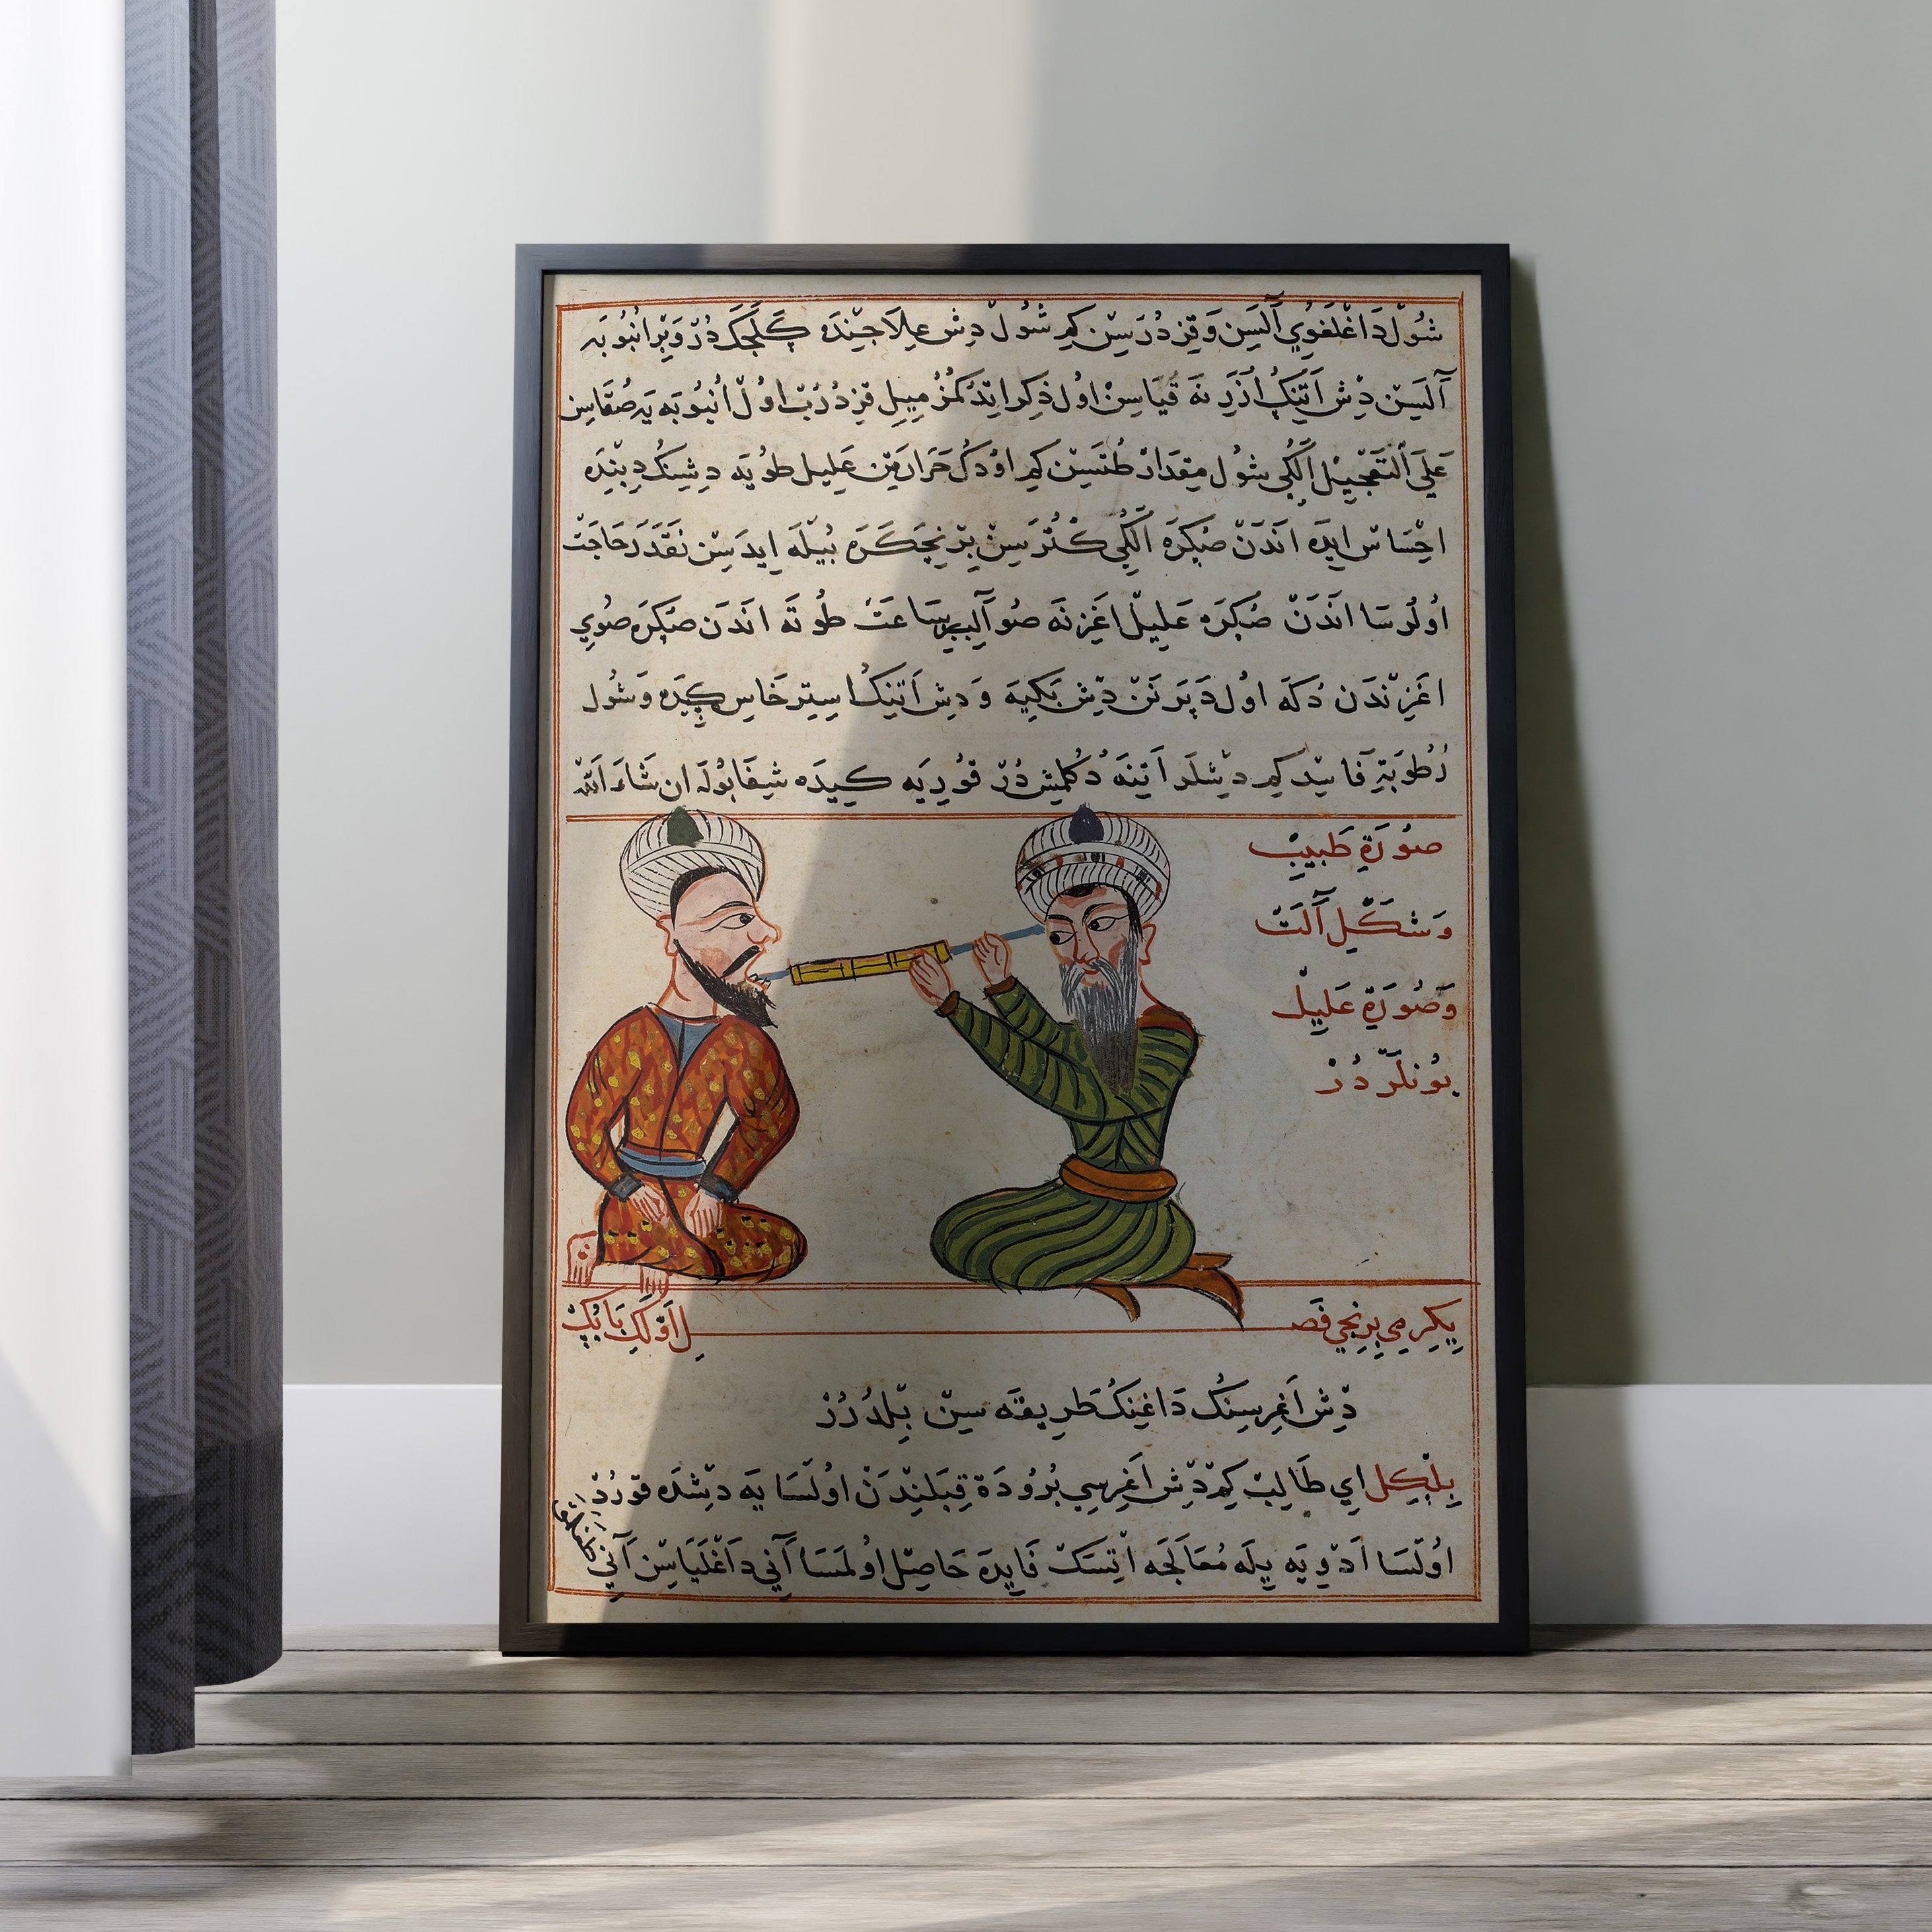 شُولْ دَاغْلَغُويِ آلَسِنْ وَقِزْدُرَسِنْ كِمْ شُولْ دِشْ عِلَاجِنْدَه كَلَجَكْ دُرْ وَبِرْ اَنْبُوبَه
آلَسِنْ دِشْ اَتِنِكْ اُزَرِنَه قُيَاسِنْ اوُلْ ذِكْر اِتْدُكُمُزْ مِيلِ قِزْدُرُبْ اوُلْ اُنْبُوبَه يَه صُقَاسِنْ
عَلَي اَلتَّعْجِيلْ اَلْكِي شُولْ مِقْدَارْ طُتَسِنْ كِمْ اوُدُكْ حَرَارَتِنْ عَلِيلْ طُويَه دِشِنِكْ دِبِنْدَه
اِحْسَاسْ اِيدَه اَنْدَنْ صُكْرَه اَلْكِي كُتُرَسِنْ بِرْ نِجَه كَرَه بُيْلَه اِيدَسِنْ نَقَدَرْ حَاجَتْ
اوُلُرسَا اَنْدَنْ صُكْرَه عَلِيلْ اَغِزِنَه صُو آلِبْ بِرْ سَاعَتْ طُوتَه اَنْدَنْ صُكْرَه صُويِ
اَغِزِنْدَنْ دُكَه اوُلْ دَپْرَنَنْ دِشْ بَكِيَه وَ دِشْ اَتِنِكْ اِسْتِرْخَاسِ كِيدَه وَشُولْ
رُطُوبَتِ فَاسِدْ كِمْ دِشْلَرْ اَتِنَه دُكُلْمِشْ دُرْ قُورِيَه كِيدَه شِفَا بُولَه اِنْ شَاءَ اَللّٰه
صُورَةِ طَبِيبْ
وَشَكْلِ آلَتْ
وَصُورَةِ عَلِيلْ
بُونْلَرْ دُرْ
يِكِرْمِي بِرِنْجِي فَصْلِ اَوَّلْكِ بَابُكْ
دِشْ اَغْرِسِنِكْ دَاغِنِكْ طَرِيقَه سِنْ بِلْدُرُرْ
بِلْكِلْ اِي طَالِبْ كِمْ دِشْ اَغْرِسِي بُرُودَة قِبَلِنْدَنْ اوُلْسَا يَه دِشْدَه قُورْدْ
اوُلْسَا اَدْوِيَه بِيلَه مُعَالَجَه اِتْسَكْ فَايِدَه حَاصِلْ اوُلْمَسَا آنِي دَاغْلَيَاسِنْ آنِي